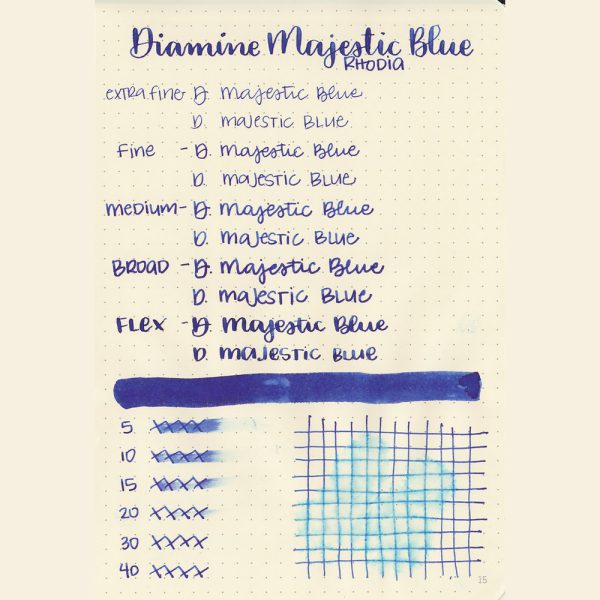 Diamine Majestic Blue
RHODIA
extra fine - D. Majestic Blue
D. MAJESTIC BLUE
Fine - D. Majestic Blue
D. MAJESTIC BLUE
medium - D. Majestic Blue
D. MAJESTIC BLUE
BROAD - D. Majestic Blue
D. MAJESTIC BLUE
FLEX - D. Majestic Blue
D. MAJESTIC BLUE
5 XXXX
10 XXXX
15 XXXX
20 XXXX
30 XXXX
40 XXXX
15